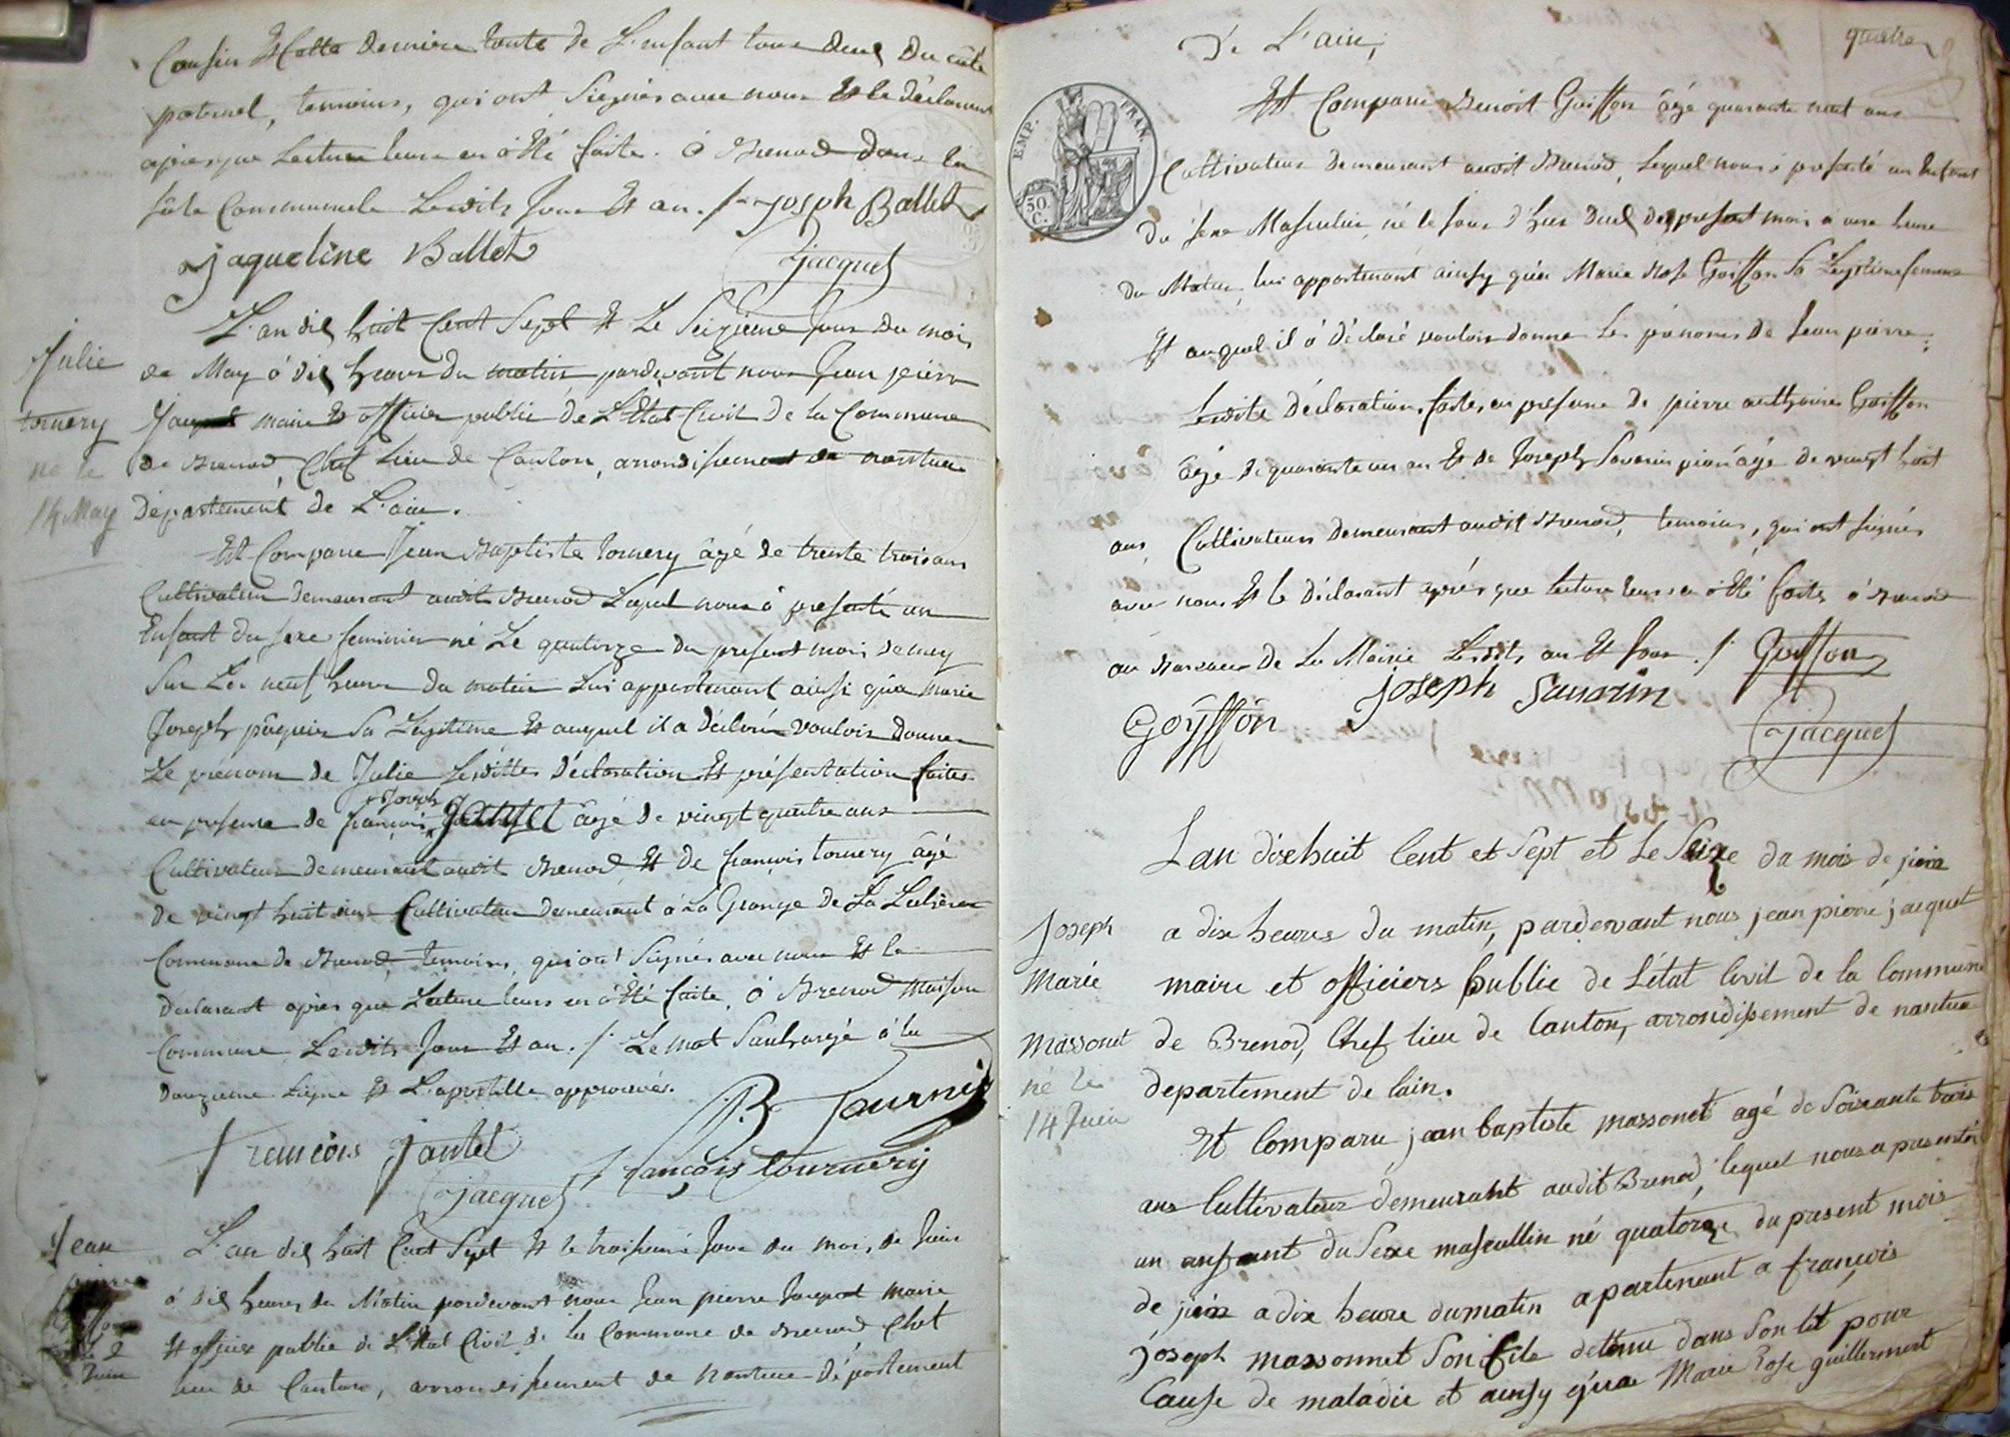 Cousin Et Cette derniere tante de L'enfant tous deux Du côté
paternel, temoins, qui ont Signés avec nous Et le déclarant
après que Lecture leur en à été faite. à Brenod dans la
sale Communale Lesdits Jour Et an. /. joseph Ballet
jaqueline Ballet jacquet
L'an dix huit Cent Sept Et Le Seizieme Jour Du mois
Julie
de May à dix heures du matin pardevant nous Jean pierre
tornery
Jacquet maire Et officier public de L'Etat Civil de la Commune
né le
de Brenod, Chef Lieu de Canton, arrondissement de nantua
14 May
département de L'ain.
Est Comparu Jean Baptiste tornery âgé de trente trois ans
Cultivateur demeurant audit Brenod Lequel nous à presenté un
Enfant du sexe feminin né Le quatorze du present mois de mey
Sur Les neuf heures du matin Lui appartenant ainsi qu'a marie
Joseph pâquier Sa Legitime Et auquel il a déclaré vouloir donner
Le prénom de Julie Lesdittes déclaration Et présentation faites
en presence de françois Joseph Jantet âgé de vingt quatre ans
Cultivateur demeurant audit Brenod Et de françois tornery âgé
de vingt huit ans Cultivateur demeurant à La Grange de La
Commune de Brenod, temoins, qui ont Signés avec nous Et le
declarant après que Lecture leurs en à été faite, à Brenod Maison
Commune Lesdits Jour Et an. /. Le mot Surchargé à la
douzieme Ligne Et L'apostille approuvés.
J.B. Tournery
francois jantet
françois tournery
jacquet
Jean
L'an dix huit Cent Sept Et le troisieme Jour du mois de Juin
pierre
à dix heures du Matin pardevant nous Jean pierre Jacquet maire
Et officier public de L'Etat Civil de la Commune de Brenod Chef
le 2
Juin
lieu de Canton, arrondissement de Nantua département
De L'ain,
quatre
EMP. FRAN.
50. C.
Est Comparu Benoit Goiffon âgé quarante neuf ans
Cultivateur demeurant audit Brenod, Lequel nous à presenté un Enfant
du sexe Masculin, né le jour d'hier deux du present mois à une heure
du Matin, lui appartenant ainsy qu'à Marie Rose Goiffon Sa Legitime femme
Et auquel il à déclaré vouloir donner Les prénoms de Jean pierre.
Lesdite déclaration faites en presence de pierre anthoine Goiffon
âgé de quarante un an Et de Joseph Savarin âgé de vingt huit
ans Cultivateurs demeurant audit Brenod, temoins, qui ont signés
avec nous Et le déclarant après que lecture leurs en à été faite à Brenod
au Bureau de La Mairie Lesdits an Et Jour. /. Goiffon
Goyffon joseph Savarin
jacquet
Lan dixehuit Cent et Sept et Le Seize du mois de juin
Joseph
a dix heures du matin, pardevant nous jean pierre jacquet
Marie
maire et officiers public de L'état Civil de la Commune
Massonet
de Brenod, Chef lieu de Canton, arrondissement de nantua
né le
departement de lain.
14 Juin
Et Comparu jean baptiste massonet agé de Soixante trois
ans Cultivateur demeurant audit Brenod, lequel nous a presentér
un anfant du Sexe mascullin né quatorze du present mois
de juin a dix heure dumatin apartenant a françois
joseph massonnet Son file detenu dans Son lit pour
Cause de maladie et ainsy qu'a Marie Rose guillermet